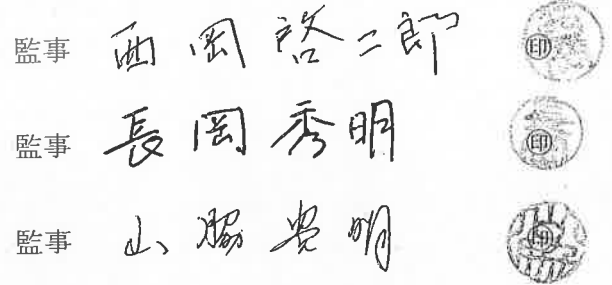 監事 西岡啓二郎 ㊞
監事 長岡秀明 ㊞
監事 山脇貴明 ㊞